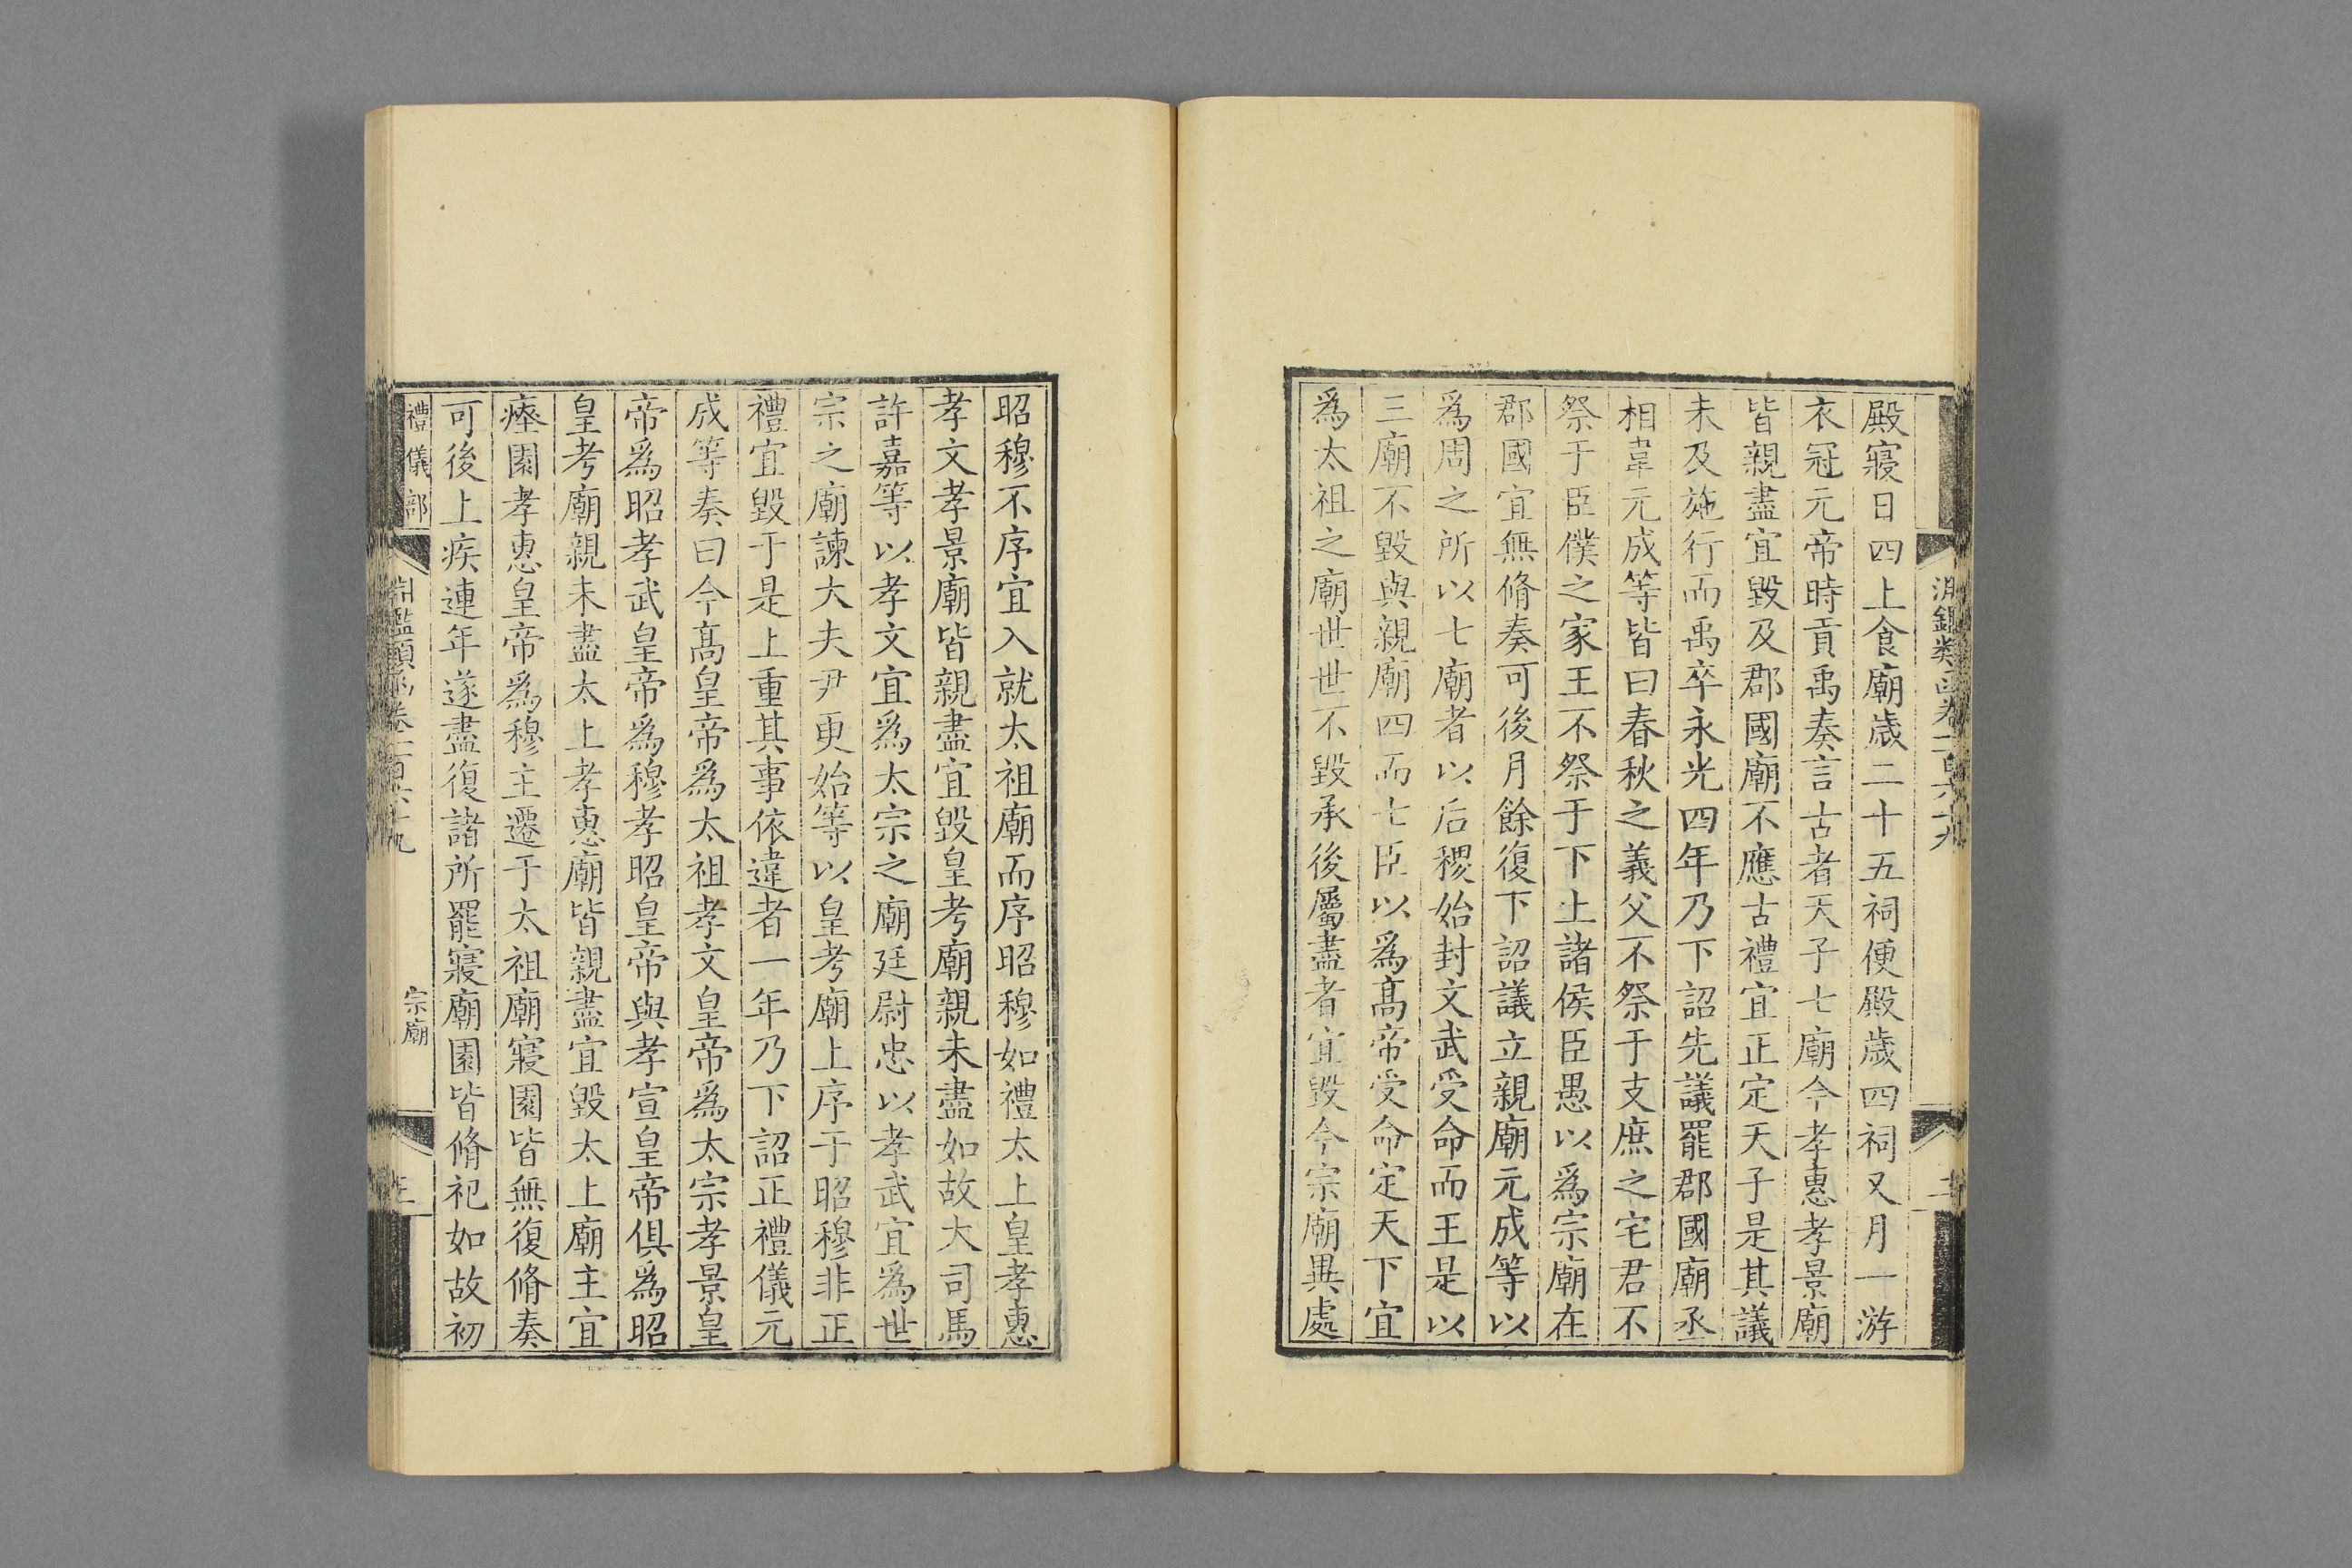 殿寢日四上食廟歲二十五祠便殿歲四祠又月一游
衣冠元帝時貢禹奏言古者天子七廟今孝惠孝景廟
皆親盡宜毀及郡國廟不應古禮宜正定天子是其議
未及施行而禹卒永光四年乃下詔先議罷郡國廟丞
相韋元成等皆曰春秋之義父不祭于支庶之宅君不
祭于臣僕之家王不祭于下土諸侯臣愚以為宗廟在
郡國宜無脩奏可後月餘復下詔議立親廟元成等以
為周之所以七廟者以后稷始封文武受命而王是以
三廟不毀與親廟四而七臣以為高帝受命定天下宜
為太祖之廟世世不毀承後屬盡者宜毀今宗廟異處
昭穆不序宜入就太祖廟而序昭穆如禮太上皇孝惠
孝文孝景廟皆親盡宜毀皇考廟親未盡如故大司馬
許嘉等以孝文宜為太宗之廟廷尉忠以孝武宜為世
宗之廟諫大夫尹更始等以皇考廟上序于昭穆非正
禮宜毀于是上重其事依違者一年乃下詔正禮儀元
成等奏曰今高皇帝為太祖孝文皇帝為太宗孝景皇
帝為昭孝武皇帝為穆孝昭皇帝與孝宣皇帝俱為昭
皇考廟親未盡太上孝惠廟皆親盡宜毀太上廟主宜
瘞園孝惠皇帝為穆主遷于太祖廟寢園皆無復脩奏
可後上疾連年遂盡復諸所罷寢廟園皆脩祀如故初
禮儀部 宗廟 三